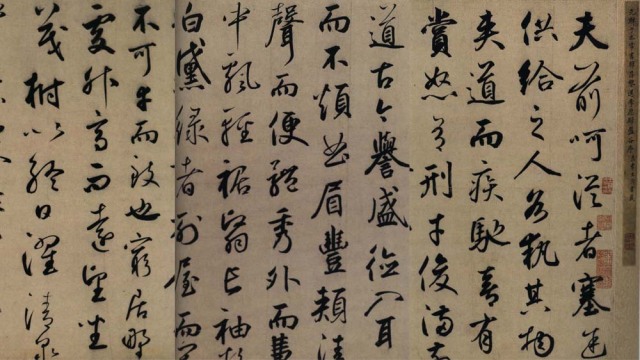 夫前呵從者塞途
供給之人各執其物
夾道而疾馳喜有
賞怒有刑才俊滿前
道古今譽盛德入耳
而不煩曲眉豐頰清
聲而便體秀外而惠
中飄輕裾翳長袖粉
白黛綠者列屋而閒
不可幸而致也窮居野
處升高而遠望坐
茂樹以終日濯清泉